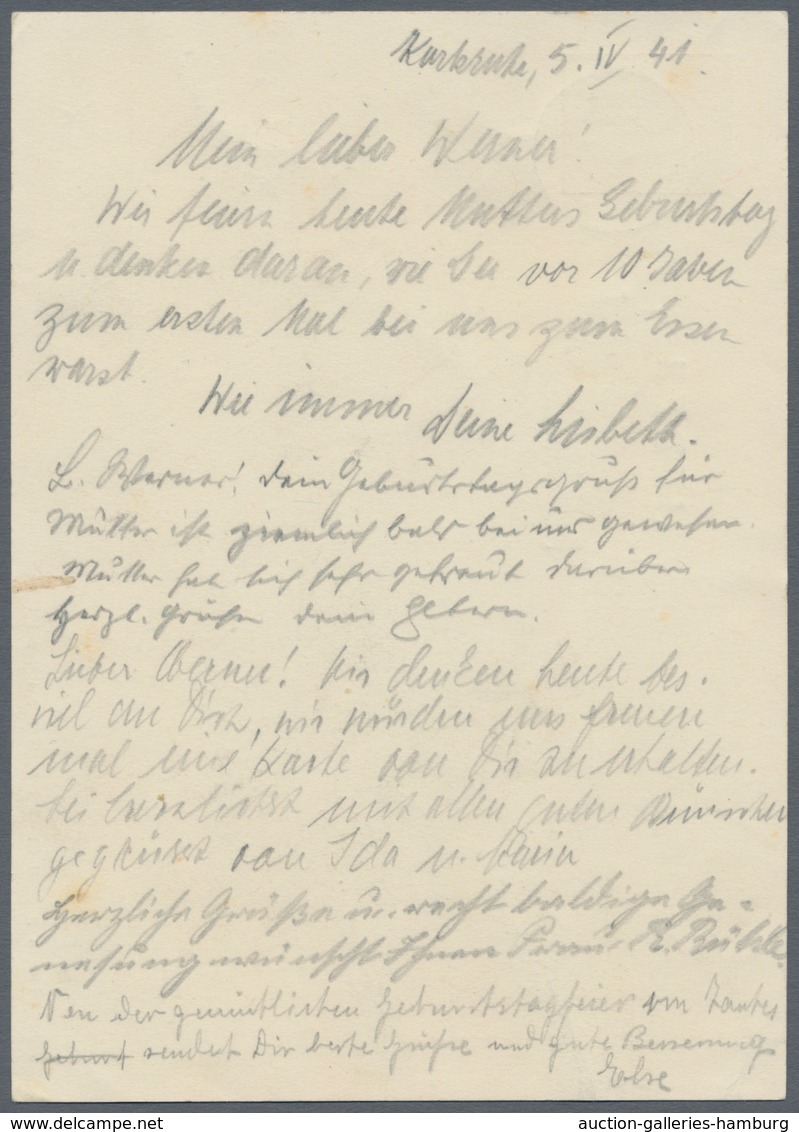 Karlsruhe, 5. IV 41.
Mein lieber Werner!
Wir feiern heute Mutters Geburtstag
u. denken daran, wie Du vor 10 Jahren
zum ersten Mal bei uns zum Essen
warst.
Wie immer Deine Lisbeth.
L. Werner! Dein Geburtstagsgruß für
Mutter ist ziemlich bald bei uns gewesen.
Mutter hat sich sehr gefreut darüber.
Herzl. Grüße Dein
Lieber Werner! Wir denken heute bes.
viel an Dich, wir würden uns freuen
mal eine Karte von Dir zu erhalten.
Sei herzlichst mit allen guten Wünschen
gegrüsst von Ida u. Karin
Herzliche Grüße u. recht baldige Ge=
nesung wünscht Ihnen Frau
Von der gemütlichen Geburtstagsfeier von Tantes
Geburt sendet Dir beste Grüsse und gute Besserung
Else
auction-galleries-hamburg